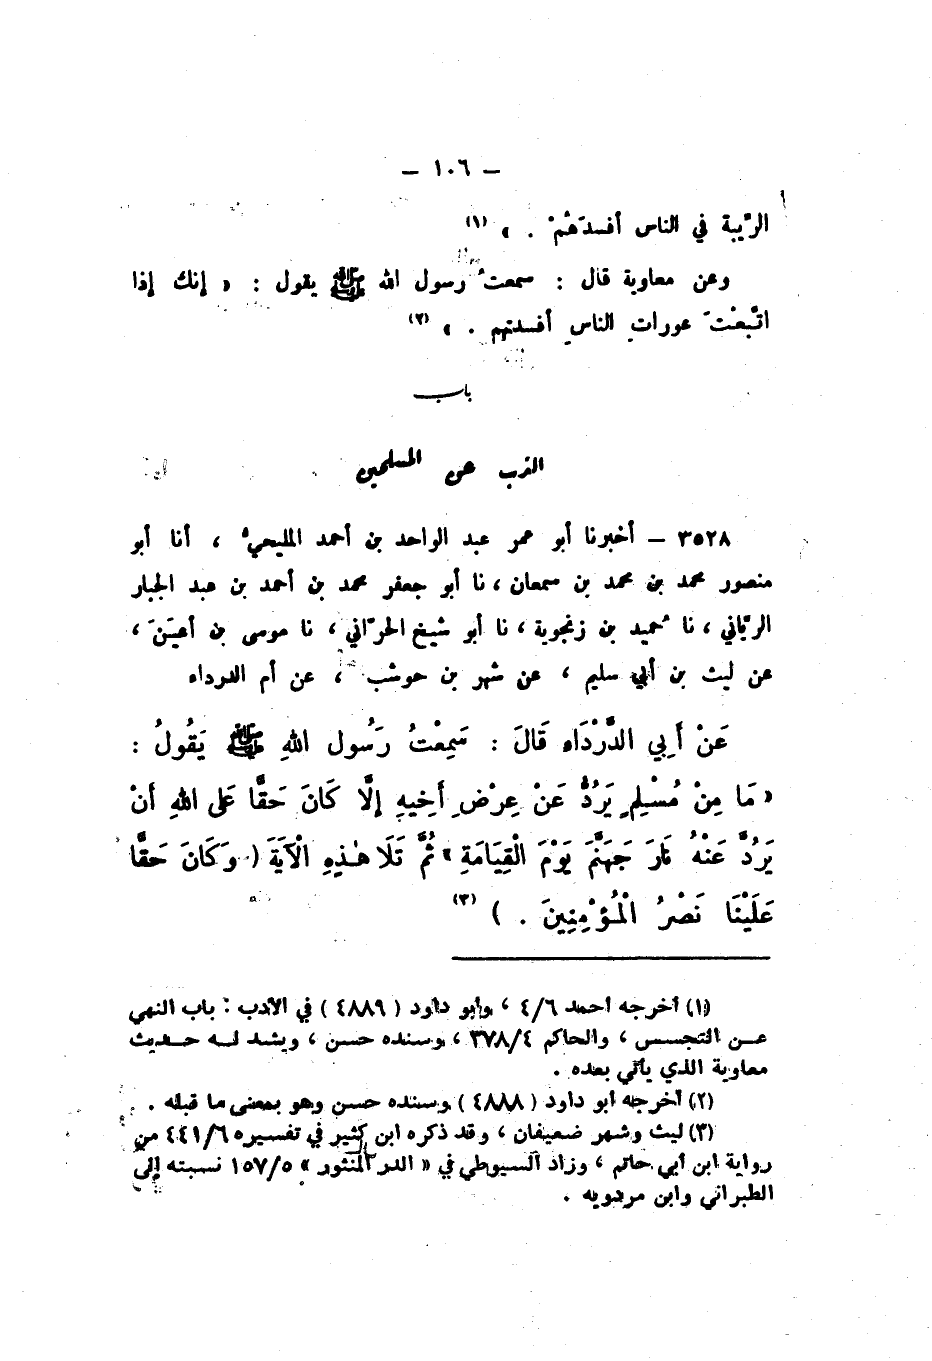 — ١٠٦ —
الرِّيبة في الناس أفسدَهُمْ . » (١)
وعن معاوية قال : سمعتُ رسول الله ﷺ يقول : « إنك إذا
اتَّبعْتَ عورات الناس أفسدتهم . » (٢)
باب
الذب عن المسلمين
٣٥٢٨ — أخبرنا أبو عمر عبد الواحد بن أحمد المليحيُّ ، أنا أبو
منصور محمد بن محمد بن سمعان ، نا أبو جعفر محمد بن أحمد بن عبد الجبار
الريّاني ، نا حُميد بن زنجوية ، نا أبو شيخ الحرّاني ، نا موسى بن أعيَنَ ،
عن ليث بن أبي سليم ، عن شهر بن حوشب ، عن أم الدرداء
عَنْ أَبِي الدَّرْدَاءِ قَالَ : سَمِعْتُ رَسُول اللهِ ﷺ يَقُولُ :
« مَا مِنْ مُسْلِمٍ يَرُدُّ عَنْ عِرْضِ أَخِيهِ إلَّا كَانَ حَقًّا عَلى اللهِ أنْ
يَرُدَّ عَنْهُ نَارَ جَهَنَّمَ يَوْمَ الْقِيَامَةِ » ثُمَّ تَلَا هٰذِهِ الْآيَةَ ( وَكَانَ حَقًّا
عَلَيْنَا نَصْرُ الْمُؤْمِنِينَ . ) (٣)
(١) أخرجه أحمد ٤/٦ ، وأبو داود ( ٤٨٨٩ ) في الأدب : باب النهي
عن التجسس ، والحاكم ٣٧٨/٤ ، وسنده حسن ، ويشد له حديث
معاوية الذي يأتي بعده .
(٢) أخرجه أبو داود ( ٤٨٨٨ ) وسنده حسن وهو بمعنى ما قبله .
(٣) ليث وشهر ضعيفان ، وقد ذكره ابن كثير في تفسيره ٤٤١/٦ من
رواية ابن أبي حاتم ، وزاد السيوطي في « الدر المنثور » ١٥٧/٥ نسبته إلى
الطبراني وابن مردويه .